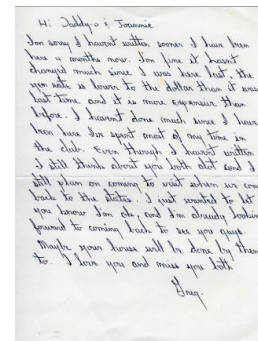 Hi Daddy-o & Joannie
I'm sorry I havent written sooner I have been
here 4 months now. I'm fine it hasnt
changed much since I was here last, the
yen rate is lower to the dollar than it was
last time and it is more expensive than
before. I havent done much since I have
been here I've spent most of my time in
the club. Even though I havent written
I still think about you both alot and I
still plan on coming to visit when us com
back to the states. I just wanted to let
you know I'm ok, and I'm already looking
forward to coming back to see you guys.
Maybe your house will be done by then
to. I love you and miss you both
Greg.